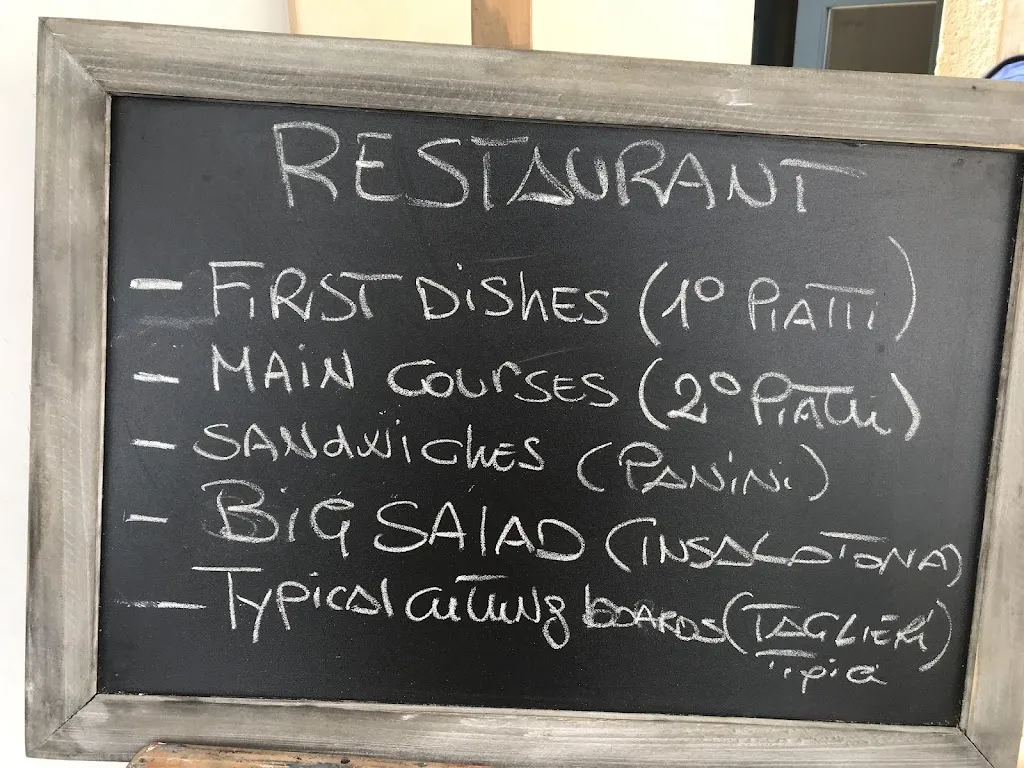 RESTAURANT
- FIRST DISHES (1° PIATTI)
- MAIN COURSES (2° PIATTI)
- SANDWICHES (PANINI)
- BIG SALAD (INSALATONA)
- TYPICAL CUTTING BOARDS (TAGLIERI
TIPICI